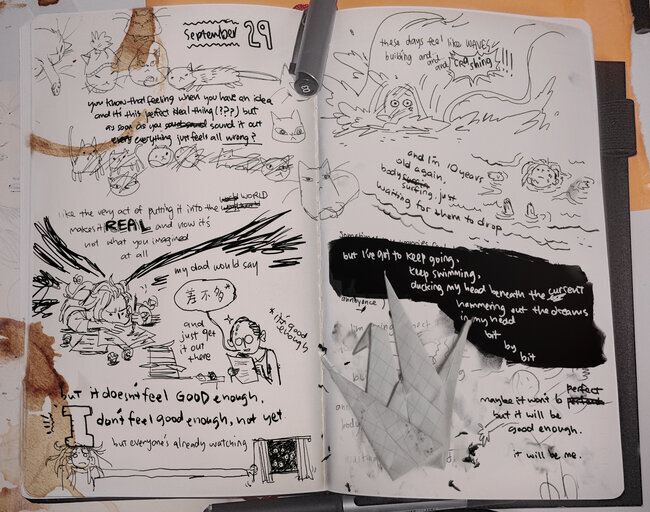 September 29
you know that feeling when you have an idea
and it's this perfect ideal thing (???) but
as soon as you sound it out
everything just feels all wrong?
like the very act of putting it into the WORLD
makes it REAL and now it's
not what you imagined
at all
my dad would say
差不多*
*it's good
enough
and
just get
it out
there
but it doesn't feel GOOD enough,
I don't feel good enough, not yet
but everyone's already watching
these days feel like WAVES
building and and
and crashing!!!
and I'm 10 years
old again,
body
surfing, just
waiting for them to drop
but I've got to keep going,
keep swimming,
ducking my head beneath the current
hammering out the dreams
in my head
bit
by
bit
annoyance
maybe it won't b perfect
but it will be
good enough.
it will be me.